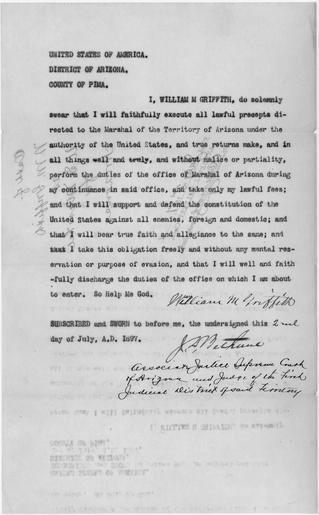 UNITED STATES OF AMERICA.
DISTRICT OF ARIZONA.
COUNTY OF PIMA.
I, WILLIAM M GRIFFITH, do solemnly
swear that I will faithfully execute all lawful precepts di-
rected to the Marshal of the Territory of Arizona under the
authority of the United States, and true returns make, and in
all things well and truly, and without malice or partiality,
perform the duties of the office of Marshal of Arizona during
my continuance in said office, and take only my lawful fees;
and that I will support and defend the constitution of the
United States against all enemies, foreign and domestic; and
that I will bear true faith and allegiance to the same; and
that I take this obligation freely and without any mental reser-
vation or purpose of evasion, and that I will well and faith
-fully discharge the duties of the office on which I am about
to enter. So Help Me God.
William M. Griffith
SUBSCRIBED and SWORN to before me, the undersigned this 2nd
day of July, A.D. 1897.
Associate Justice Supreme Court
of Arizona and Judge of the First
Judicial District of said Territory